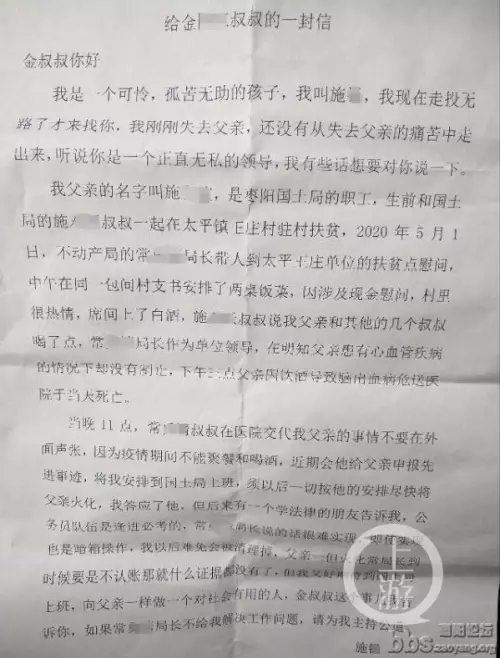 给金 叔叔的一封信
金叔叔你好
我是一个可怜，孤苦无助的孩子，我叫施 ，我现在走投无
路了才来找你，我刚刚失去父亲，还没有从失去父亲的痛苦中走
出来，听说你是一个正直无私的领导，我有些话想要对你说一下。
我父亲的名字叫施 ，是枣阳国土局的职工，生前和国土
局的施 叔叔一起在太平镇王庄村驻村扶贫，2020 年 5 月 1
日，不动产局的常 局长带人到太平王庄单位的扶贫点慰问，
中午在同一包间村支书安排了两桌饭菜，因涉及现金慰问，村里
很热情，席间上了白酒，施 叔叔说我父亲和其他的几个叔叔
喝了点，常 局长作为单位领导，在明知父亲患有心血管疾病
的情况下却没有制止，下午三点父亲因饮酒导致脑出血病危送医
院于当天死亡。
当晚 11 点，常 叔叔在医院交代我父亲的事情不要在外
面声张，因为疫情期间不能聚餐和喝酒，近期会他给父亲申报先
进事迹，将我安排到国土局上班，须以后一切按他的安排尽快将
父亲火化，我答应了他，但后来有一个学法律的朋友告诉我，公
务员队伍是逢进必考的，常 局长说的话很难实现，即何实现
也是暗箱操作，我以后难免会被清理掉，父亲一但火化常局长到
时候要是不认账那就什么证据都没有了，但我又好想
上班，向父亲一样做一个对社会有用的人，金叔叔这个事
诉你，如果常 局长不给我解决工作问题，请为我主持公道
施
上游
枣阳论坛
bbs.zaoyang.org